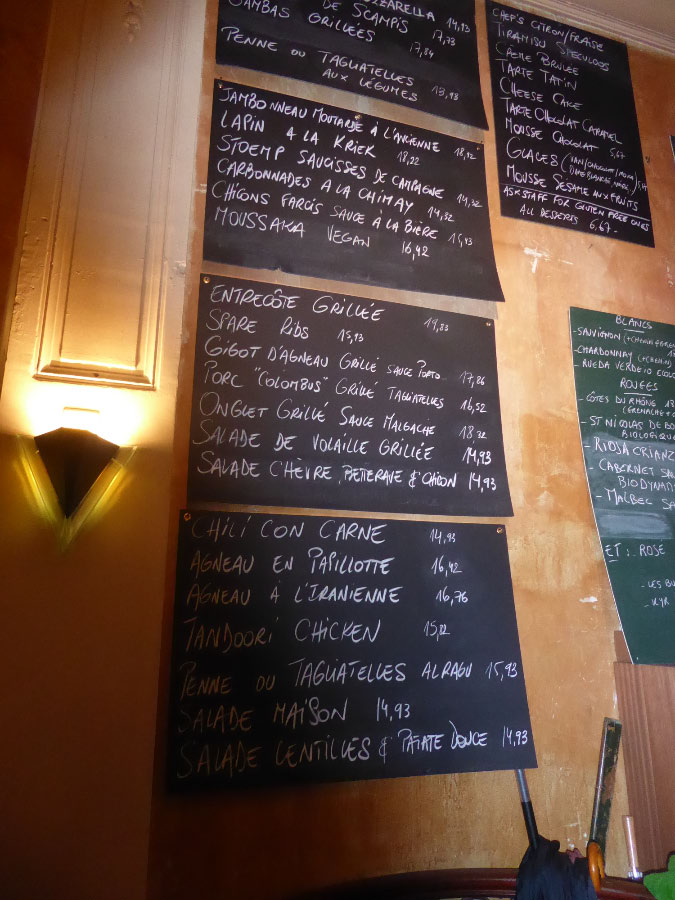 DE SCAMPIS 17,73
GAMBAS GRILLÉES 17,84
PENNE OU TAGLIATELLES
AUX LÉGUMES 13,98
JAMBONNEAU MOUTARDE À L'ANCIENNE 18,12
LAPIN A LA KRIEK 18,22
STOEMP SAUCISSES DE CAMPAGNE 14,32
CARBONNADES A LA CHIMAY 14,32
CHICONS FARCIS SAUCE À LA BIÈRE
MOUSSAKA VEGAN 16,42
ENTRECÔTE GRILLÉE 19,83
SPARE RIBS 15,93
GIGOT D'AGNEAU GRILLÉ SAUCE PORTO 17,86
PORC "COLOMBUS" GRILLÉ TAGLIATELLES 16,52
ONGLET GRILLÉ SAUCE MALGACHE 18,32
SALADE DE VOLAILLE GRILLÉE 14,93
SALADE CHÈVRE, BETTERAVE & CHICON 14,93
CHILI CON CARNE 14,93
AGNEAU EN PAPILLOTTE 16,42
AGNEAU À L'IRANIENNE 16,76
TANDOORI CHICKEN 15,82
PENNE OU TAGLIATELLES AL RAGU 15,93
SALADE MAISON 14,93
SALADE LENTILLES & PATATE DOUCE 14,93
CITRON/FRAISE
TIRAMISU SPECULOOS
CRÈME BRULÉE
TARTE TATIN
CHEESE CAKE
TARTE CHOCOLAT CARAMEL
MOUSSE CHOCOLAT 5,67
GLACES
MOUSSE SÉSAME AUX FRUITS
ASK STAFF FOR GLUTEN FREE ONES
ALL DESSERTS 6,67-
BLANCS
- SAUVIGNON
- CHARDONNAY
- RUEDA VERDEJO
ROUGES
- CÔTES DU RHÔNE
- ST NICOLAS DE
BIOLOGIQUE
- RIOJA CRIANZ
- CABERNET
BIODYNAM
- MALBEC
ET: ROSE
- LES
- KYR